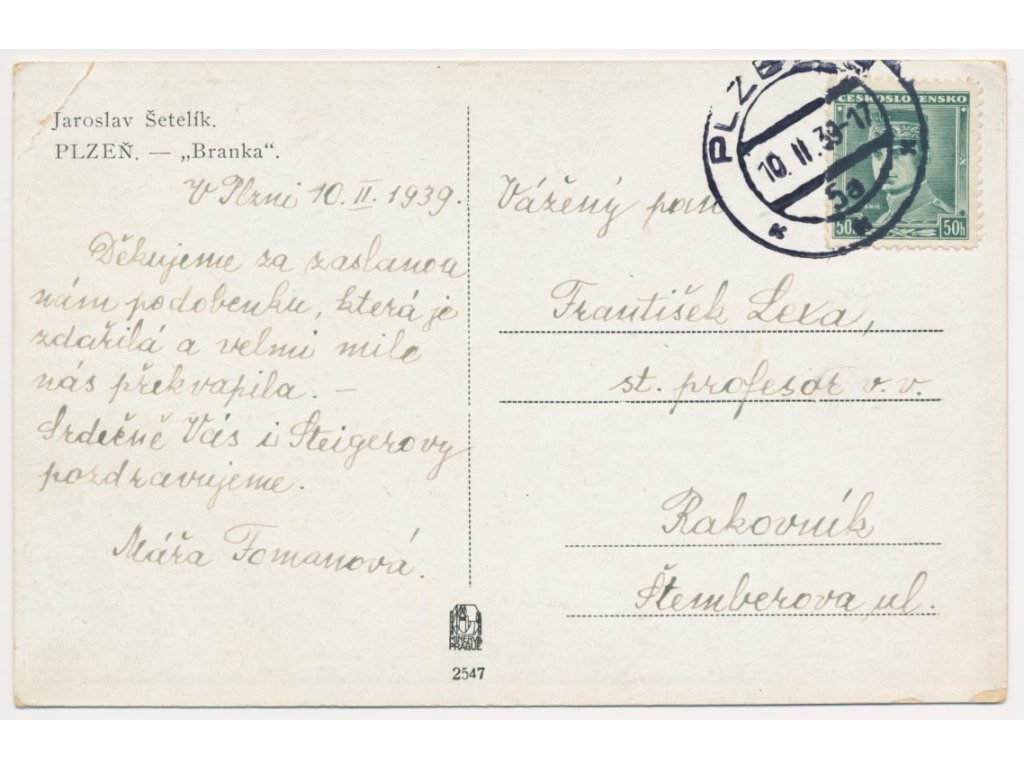 Jaroslav Šetelík.
PLZEŇ. — „Branka“.
V Plzni 10. II. 1939.
Děkujeme za zaslanou
nám podobenku, která je
zdařilá a velmi mile
nás překvapila. —
Srdečně Vás i Šteigerovy
pozdravujeme.
Máňa Tomanová.
MINERVA
PRAGUE
2547
Vážený pan
František Lexa,
st. profesor v. v.
Rakovník
Štemberova ul.
10. II. 39-17
5a
ČESKOSLOVENSKO
50h